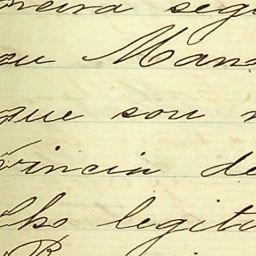 reira segu
ou Mano
que sou n
vincia de
lho legiti